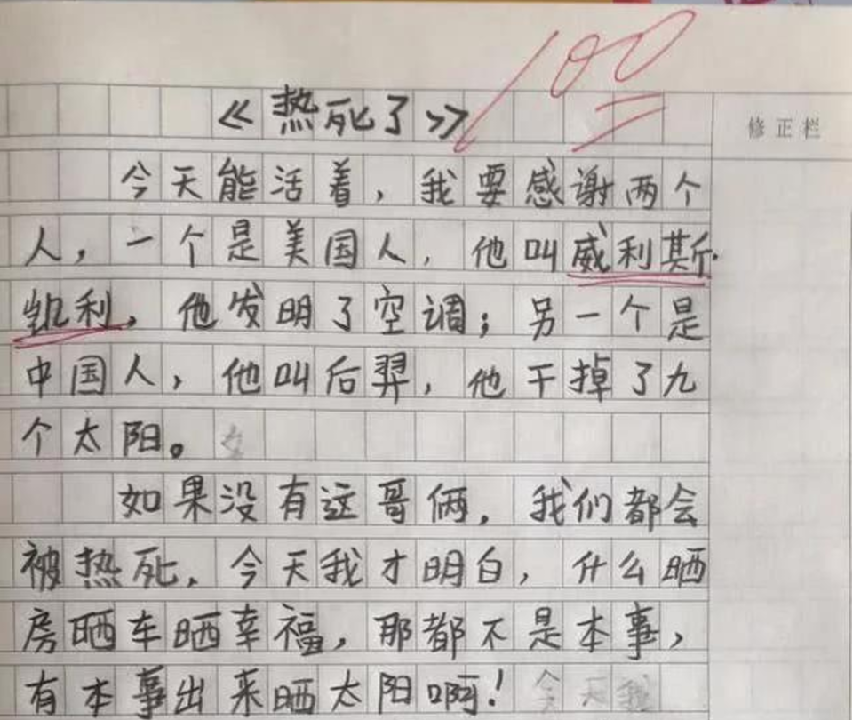 100
《热死了》
修正栏
今天能活着，我要感谢两个
人，一个是美国人，他叫威利斯·
凯利，他发明了空调；另一个是
中国人，他叫后羿，他干掉了九
个太阳。
如果没有这哥俩，我们都会
被热死，今天我才明白，什么晒
房晒车晒幸福，那都不是本事，
有本事出来晒太阳啊！今天我